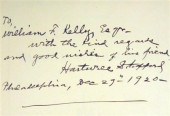 To
William F. Kelly, Esqr.
with the kind regards
and good wishes of his friend
Philadelphia, Dec 29th 1920